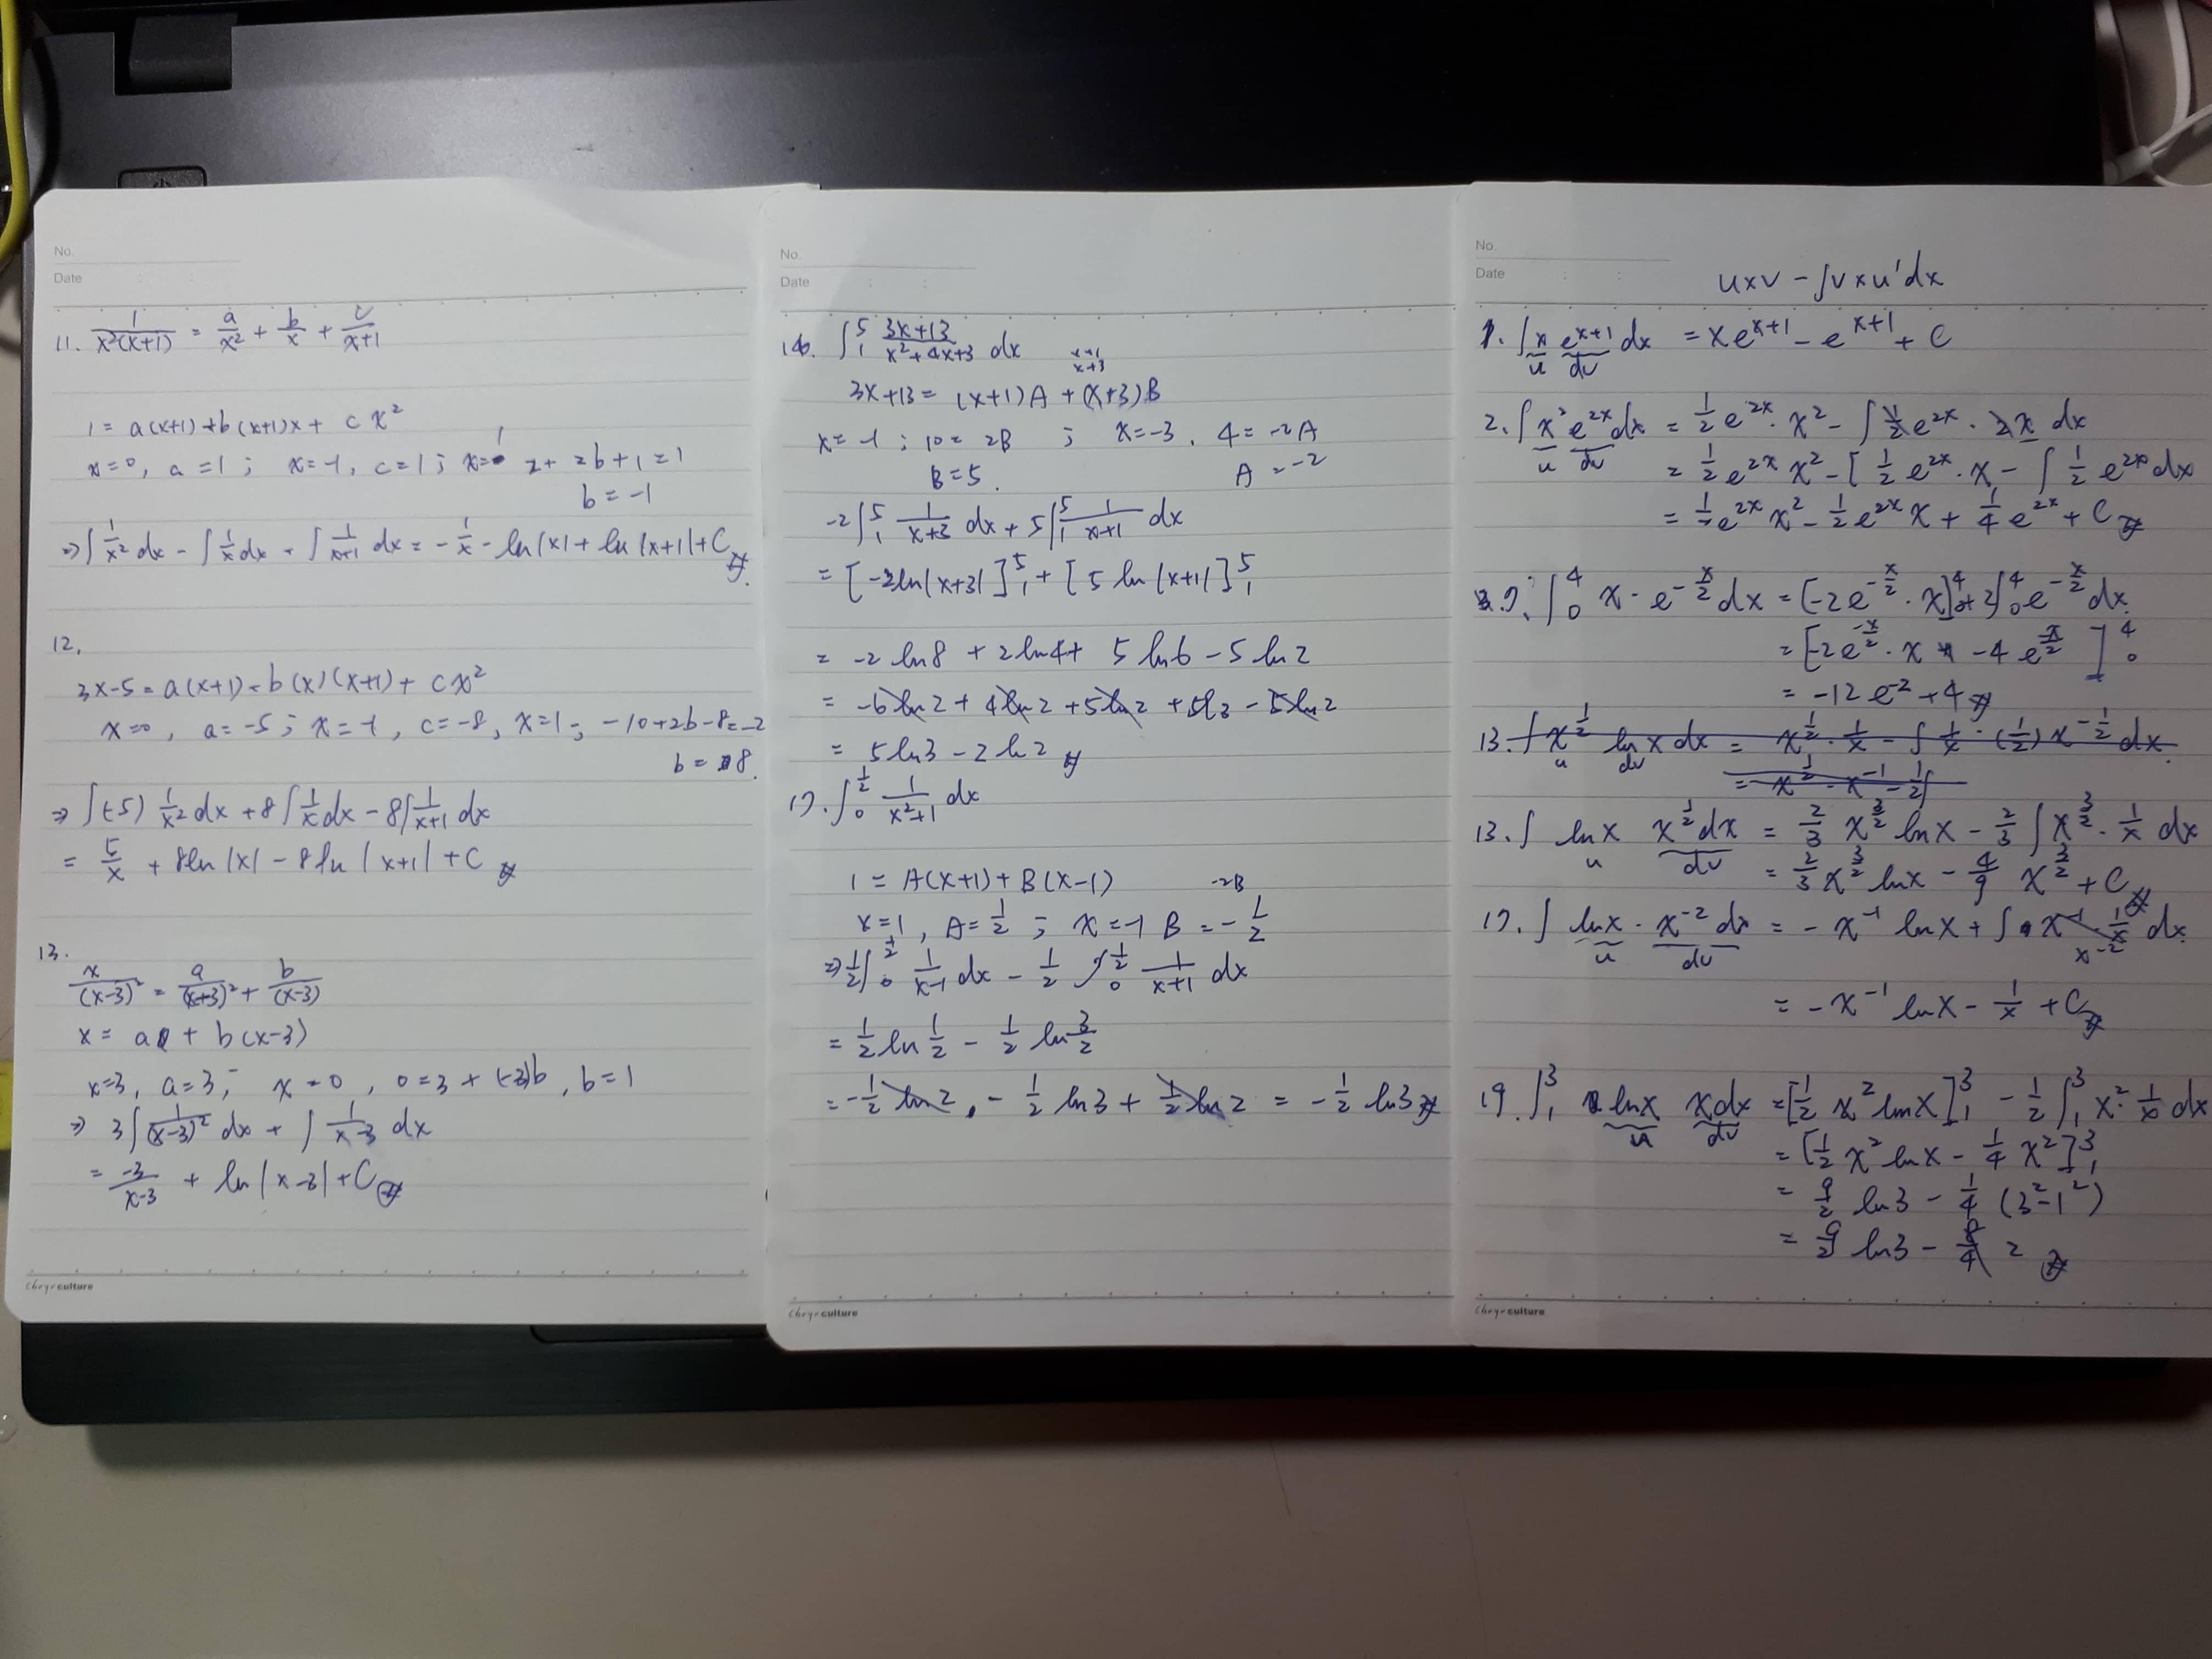 No.
Date : :
11. 1/(x²(x+1)) = a/x² + b/x + c/(x+1)
1 = a(x+1) + b(x+1)x + cx²
x=0, a=1 ; x=-1, c=1 ; x=1 2+2b+1=1
b=-1
⇒ ∫ 1/x² dx - ∫ 1/x dx + ∫ 1/(x+1) dx = -1/x - ln|x| + ln|x+1| + C
12.
3x-5 = a(x+1) + b(x)(x+1) + cx²
x=0, a=-5 ; x=-1, c=-8, x=1 ; -10+2b-8=-2
b=8.
⇒ ∫(-5) 1/x² dx + 8∫ 1/x dx - 8∫ 1/(x+1) dx
= 5/x + 8ln|x| - 8ln|x+1| + C
13.
x/(x-3)² = a/(x-3)² + b/(x-3)
x = a + b(x-3)
x=3, a=3 ; x=0, 0=3+(-3)b, b=1
⇒ 3∫ 1/(x-3)² dx + ∫ 1/(x-3) dx
= -3/(x-3) + ln|x-3| + C
Chry✶culture
No.
Date : :
16. ∫₁⁵ (3x+13)/(x²+4x+3) dx
x+1
x+3
3x+13 = (x+1)A + (x+3)B
x=-1 ; 10=2B ; x=-3, 4=-2A
B=5. A=-2
-2∫₁⁵ 1/(x+3) dx + 5∫₁⁵ 1/(x+1) dx
= [-2ln|x+3|]₁⁵ + [5 ln|x+1|]₁⁵
= -2 ln8 + 2ln4 + 5 ln6 - 5 ln2
= -6ln2 + 4ln2 + 5ln2 + 5l3 - 5ln2
= 5ln3 - 2ln2
17. ∫₀^(1/2) 1/(x²-1) dx
1 = A(x+1) + B(x-1) -2B
x=1, A=1/2 ; x=-1 B=-1/2
⇒ 1/2 ∫₀^(1/2) 1/(x-1) dx - 1/2 ∫₀^(1/2) 1/(x+1) dx
= 1/2 ln 1/2 - 1/2 ln 3/2
= -1/2 ln2 - 1/2 ln3 + 1/2 ln2 = -1/2 ln3
Chry✶culture
No.
Date : :
u×v - ∫v×u'dx
1. ∫ x e^(x+1) dx = xe^(x+1) - e^(x+1) + C
u dv
2. ∫ x² e^(2x) dx = 1/2 e^(2x) · x² - ∫ 1/2 e^(2x) · 2x dx
u dv
= 1/2 e^(2x) x² - [1/2 e^(2x) · x - ∫ 1/2 e^(2x) dx
= 1/2 e^(2x) x² - 1/2 e^(2x) x + 1/4 e^(2x) + C
9. ∫₀⁴ x · e^(-x/2) dx = [-2e^(-x/2) · x]₀⁴ + 2∫₀⁴ e^(-x/2) dx
= [-2e^(-x/2) · x - 4e^(-x/2)]₀⁴
= -12e^(-2) + 4
13. ∫ x^(1/2) ln x dx = x^(1/2) · 1/x - ∫ 1/x · (1/2) x^(-1/2) dx
u dv
= x^(1/2) · x^(-1) - 1/2 ∫
13. ∫ ln x x^(1/2) dx = 2/3 x^(3/2) ln x - 2/3 ∫ x^(3/2) · 1/x dx
u dv
= 2/3 x^(3/2) ln x - 4/9 x^(3/2) + C
17. ∫ ln x · x^(-2) dx = -x^(-1) ln x + ∫ x^(-1) · 1/x dx
u dv x^(-2)
= -x^(-1) ln x - 1/x + C
19. ∫₁³ ln x x dx = [1/2 x² ln x]₁³ - 1/2 ∫₁³ x² · 1/x dx
u dv
= [1/2 x² ln x - 1/4 x²]₁³
= 9/2 ln3 - 1/4 (3²-1²)
= 9/2 ln3 - 8/4 2
Chry✶culture